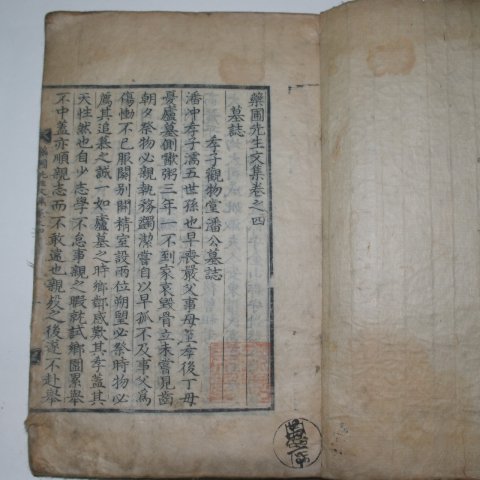 藥圃先生文集卷之四
墓誌
孝子觀物堂潘公墓誌
潘冲孝子濡五世孫也早喪嚴父事母菫孝後丁母
憂廬墓側歠粥三年一不到家哀毀骨立未嘗見齒
朝夕祭物必親執務蠲潔嘗自以早孤不及事父爲
傷慟不已服闋別開精室設兩位朔望必祭時物必
薦其追慕之誠一如廬墓之時鄕鄰咸歎其孝盖其
天性然也自少志學不忘事親之暇就試鄕圍累擧
不中盖亦順親志而不敢違也親歿之後遂不赴擧